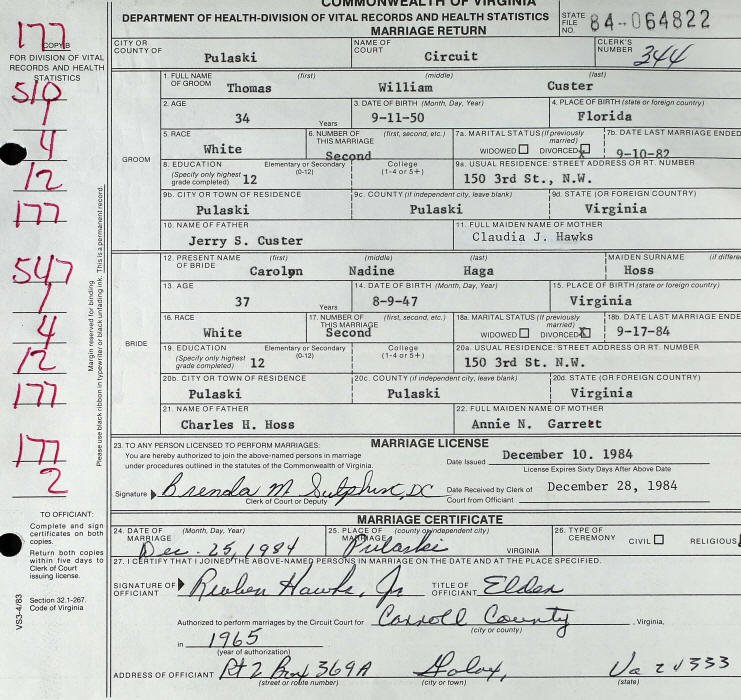 COMMONWEALTH OF VIRGINIA
DEPARTMENT OF HEALTH-DIVISION OF VITAL RECORDS AND HEALTH STATISTICS
MARRIAGE RETURN
STATE FILE NO. 84-064822
177
COPY B
FOR DIVISION OF VITAL RECORDS AND HEALTH STATISTICS
CITY OR COUNTY OF Pulaski
NAME OF COURT Circuit
CLERK'S NUMBER 344
510
1
4
12
177
547
1
4
12
177
177
2
Margin reserved for binding
Please use black ribbon in typewriter or black unfading ink. This is a permanent record.
GROOM
1. FULL NAME OF GROOM (first) (middle) (last)
Thomas William Custer
2. AGE 34 Years
3. DATE OF BIRTH (Month, Day, Year) 9-11-50
4. PLACE OF BIRTH (state or foreign country) Florida
5. RACE White
6. NUMBER OF THIS MARRIAGE (first, second, etc.) Second
7a. MARITAL STATUS (If previously married) WIDOWED DIVORCED X
7b. DATE LAST MARRIAGE ENDED 9-10-82
8. EDUCATION (Specify only highest grade completed) Elementary or Secondary (0-12) 12 College (1-4 or 5+)
9a. USUAL RESIDENCE: STREET ADDRESS OR RT. NUMBER 150 3rd St., N.W.
9b. CITY OR TOWN OF RESIDENCE Pulaski
9c. COUNTY (if independent city, leave blank) Pulaski
9d. STATE (OR FOREIGN COUNTRY) Virginia
10. NAME OF FATHER Jerry S. Custer
11. FULL MAIDEN NAME OF MOTHER Claudia J. Hawks
BRIDE
12. PRESENT NAME OF BRIDE (first) (middle) MAIDEN SURNAME (if differe
Carolyn Nadine Haga Hoss
13. AGE 37 Years
14. DATE OF BIRTH (Month, Day, Year) 8-9-47
15. PLACE OF BIRTH (state or foreign country) Virginia
16. RACE White
17. NUMBER OF THIS MARRIAGE (first, second, etc.) Second
18a. MARITAL STATUS (If previously married) WIDOWED DIVORCED X
18b. DATE LAST MARRIAGE ENDE 9-17-84
19. EDUCATION (Specify only highest grade completed) Elementary or Secondary (0-12) 12 College (1-4 or 5+)
20a. USUAL RESIDENCE: STREET ADDRESS OR RT. NUMBER 150 3rd St. N.W.
20b. CITY OR TOWN OF RESIDENCE Pulaski
20c. COUNTY (if independent city, leave blank) Pulaski
20d. STATE (OR FOREIGN COUNTRY) Virginia
21. NAME OF FATHER Charles H. Hoss
22. FULL MAIDEN NAME OF MOTHER Annie N. Garrett
23. TO ANY PERSON LICENSED TO PERFORM MARRIAGES: MARRIAGE LICENSE
You are hereby authorized to join the above-named persons in marriage
under procedures outlined in the statutes of the Commonwealth of Virginia.
Date Issued December 10. 1984
License Expires Sixty Days After Above Date
Signature Brenda M Sutphin, DC
Clerk of Court or Deputy
Date Received by Clerk of Court from Officiant December 28, 1984
TO OFFICIANT:
Complete and sign certificates on both copies.
Return both copies within five days to Clerk of Court issuing license.
Section 32.1-267. Code of Virginia
VS3-4/83
MARRIAGE CERTIFICATE
24. DATE OF MARRIAGE (Month, Day, Year) Dec. 25, 1984
25. PLACE OF MARRIAGE (county or independent city) Pulaski VIRGINIA
26. TYPE OF CEREMONY CIVIL RELIGIOUS
27. I CERTIFY THAT I JOINED THE ABOVE-NAMED PERSONS IN MARRIAGE ON THE DATE AND AT THE PLACE SPECIFIED.
SIGNATURE OF OFFICIANT Reuben Hawks, Jr
TITLE OF OFFICIANT Elder
Authorized to perform marriages by the Circuit Court for Carroll County, Virginia,
(city or county)
in 1965
(year of authorization)
ADDRESS OF OFFICIANT Rt 2 Box 369A Galax, Va 24333
(street or route number) (city or town) (state)